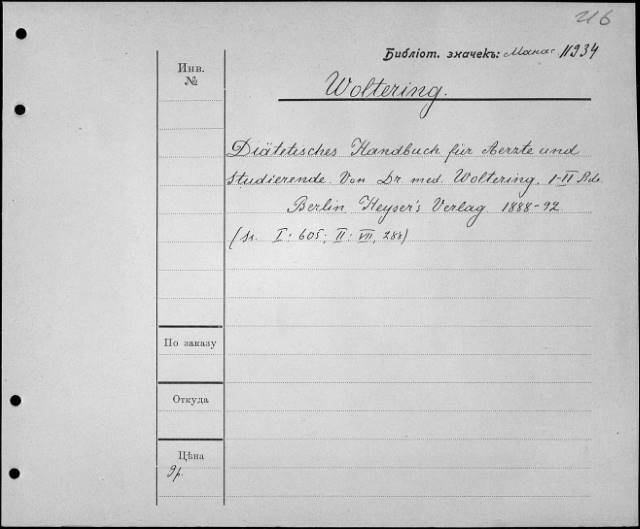 216
Библіот. значекъ: Манас 11934
Инв.
№
Woltering.
Diätetisches Handbuch für Aerzte und
Studierende. Von Dr med. Woltering. I-II Bde.
Berlin. Heyser's Verlag. 1888-92
(Sr. I: 605; II: VII, 288)
По заказу
Откуда
Цѣна
9 р.